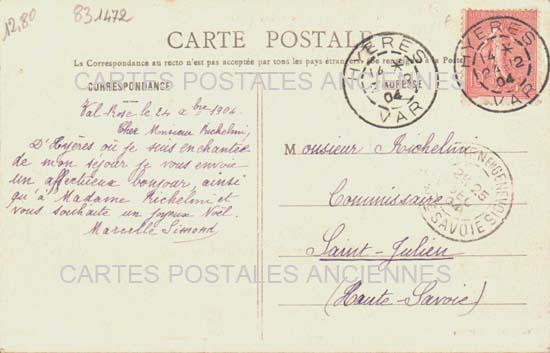 12,80
83 1472
CARTE POSTALE
La Correspondance au recto n'est pas acceptée par tous les pays étrangers. (Se renseigner à la Poste)
CORRESPONDANCE
ADRESSE
HYERES
VAR
04
HYERES
VAR
04
Val-Rose le 24 xbre 1904
Cher Monsieur Richelini,
D'Hyères où je suis enchantée
de mon séjour je vous envoie
un affectueux bonjour, ainsi
qu'à Madame Richelini et
vous souhaite un joyeux Noël.
Marcelle Simond
Monsieur Richelini
Commissaire
Saint-Julien
(Haute-Savoie)
SAVOIE
CARTES POSTALES ANCIENNES
CARTES POSTALES ANCIENNES